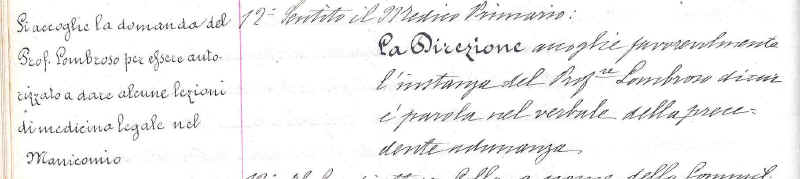 Si accoglie la domanda del
Prof. Lombroso per essere auto-
rizzato a dare alcune lezioni
di medicina legale nel
Manicomio
12° Sentito il Medico Primario:
La Direzione accoglie favorevolmente
l'instanza del Prof.re Lombroso di cui
è parola nel verbale della prece-
dente adunanza.